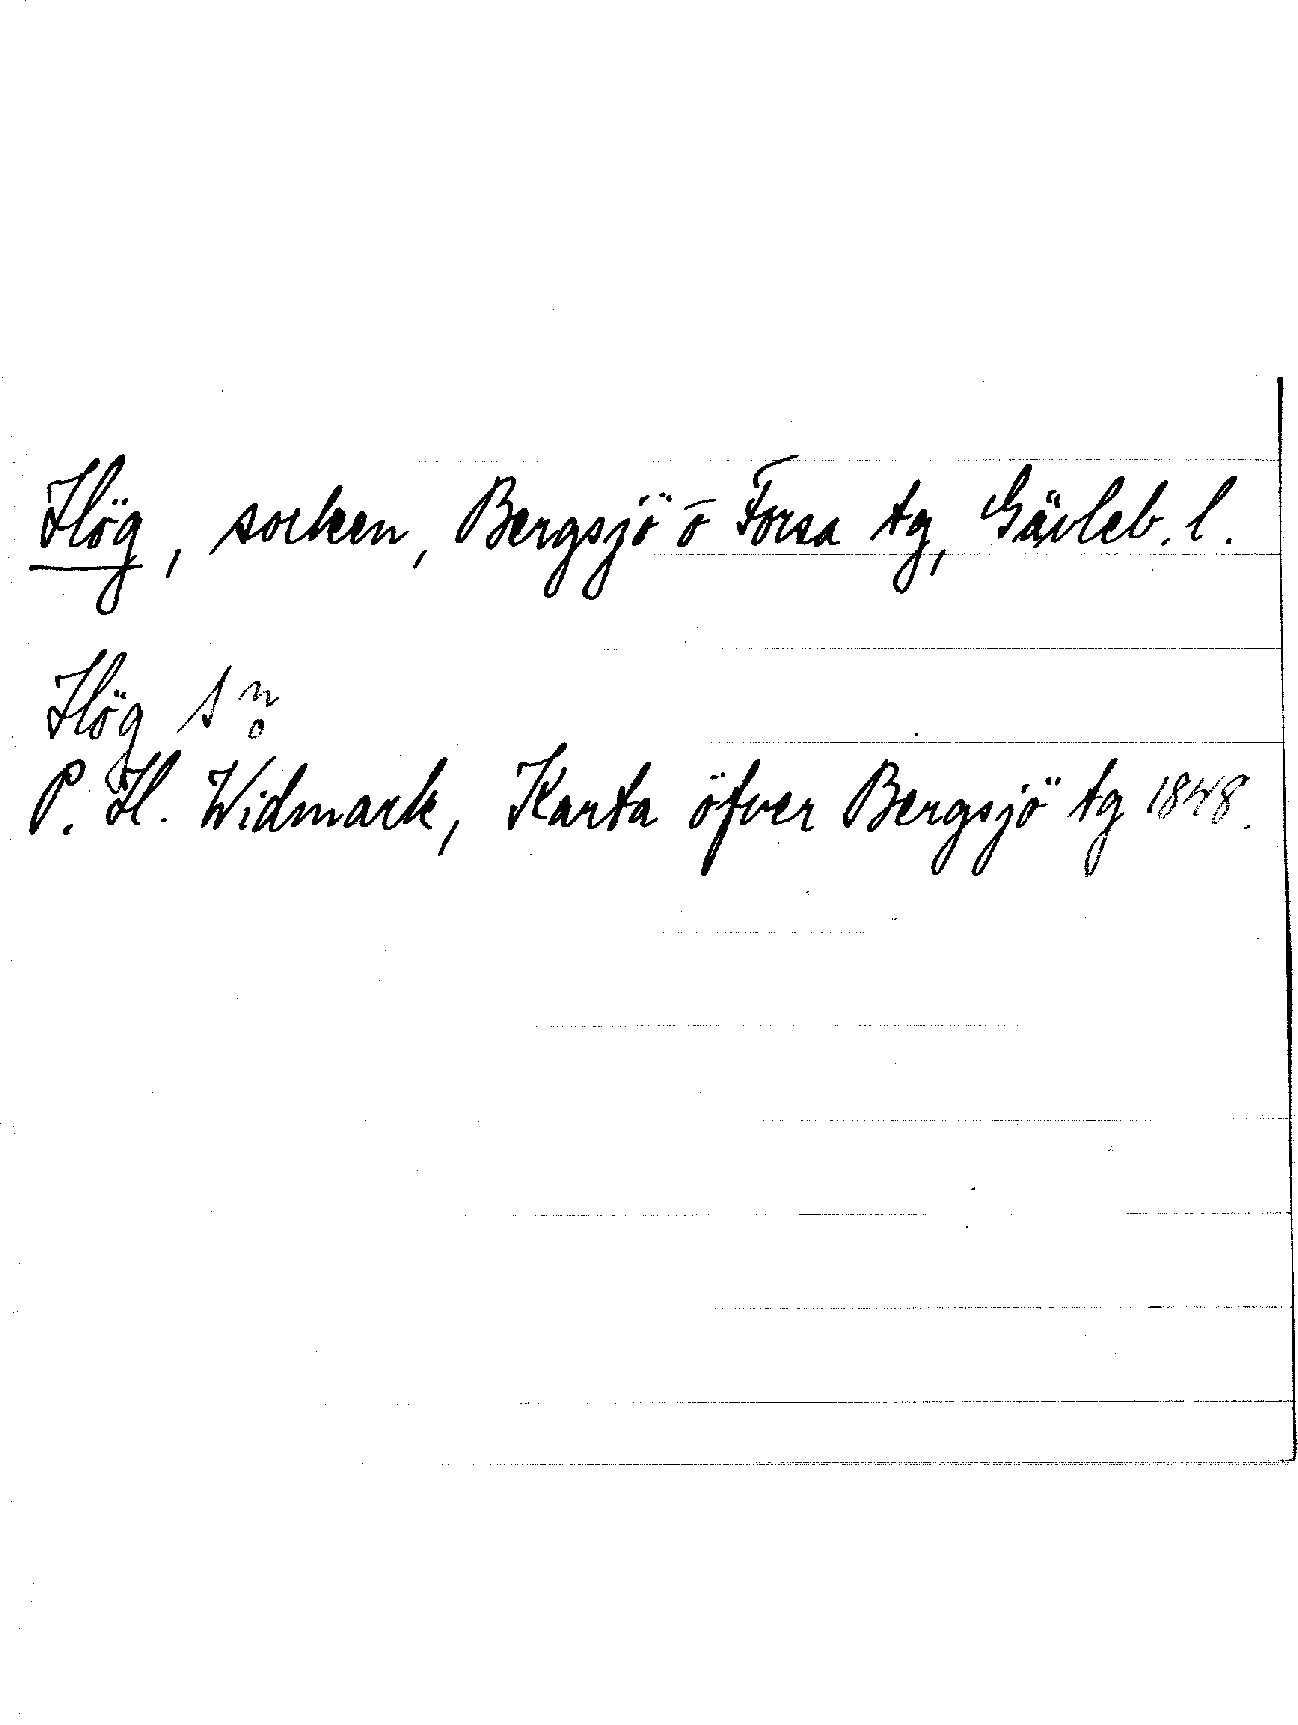 Hög, socken, Bergsjö o Forsa tg, Gävleb. l.
Hög sn
P. H. Widmark, Karta öfver Bergsjö tg 1848.